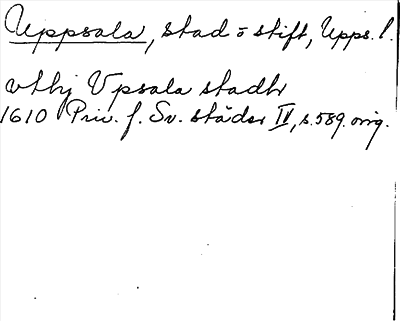 Uppsala, stad o stift, Upps. l.
vthj Vpsala stadh
1610 Priv. f. Sv. städer IV, s. 589. orig.